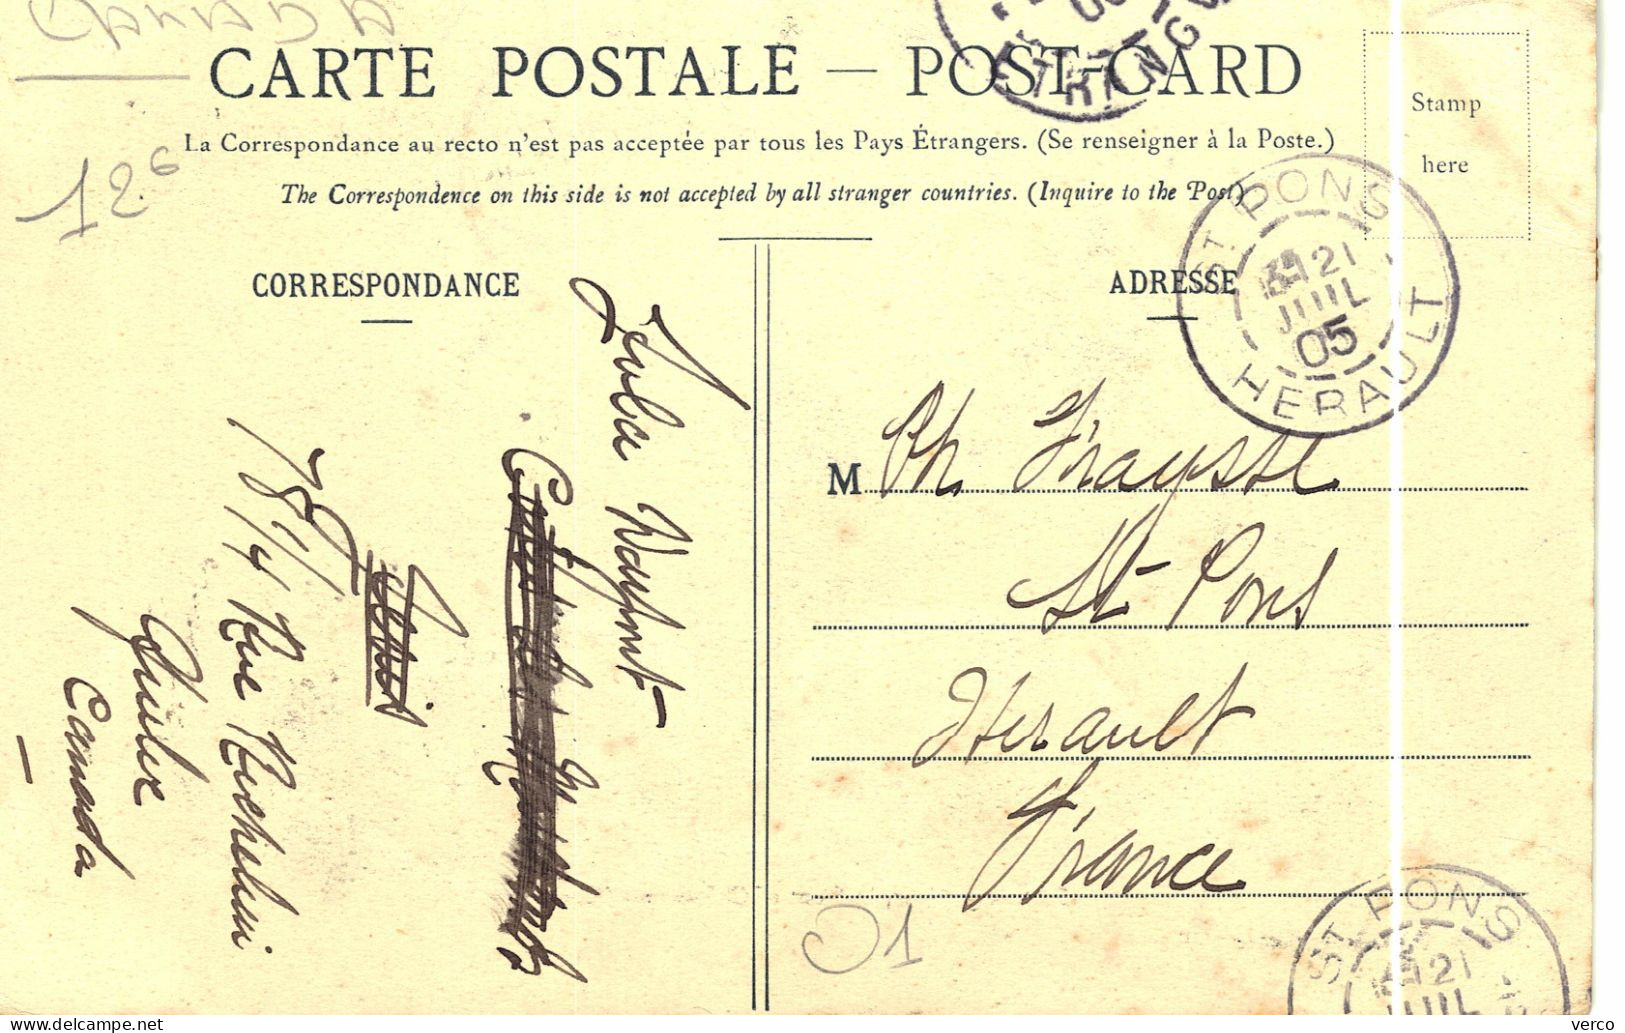 CANADA
CARTE POSTALE — POST-CARD
La Correspondance au recto n'est pas acceptée par tous les Pays Étrangers. (Se renseigner à la Poste.)
The Correspondence on this side is not accepted by all stranger countries. (Inquire to the Post)
Stamp
here
ETRANG
12
ST PONS
21
JUIL
05
HERAULT
CORRESPONDANCE
ADRESSE
Julia
Rue
Canada
M Ph. Fraysse
St Pons
Herault
France
01
ST PONS
21
JUIL
delcampe.net
verco